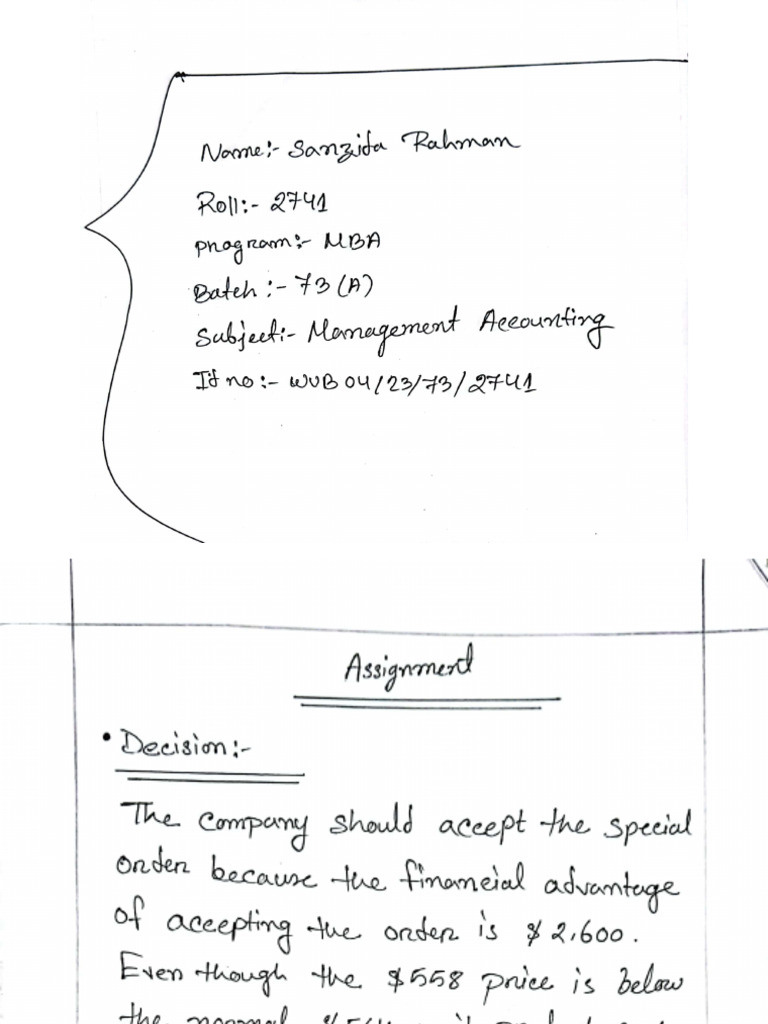 Name:- Sanzida Rahman
Roll:- 2741
program:- MBA
Batch :- 73 (A)
Subject:- Management Accounting
Id no :- WUB 04/23/73/2741
Assignment
• Decision:-
The company should accept the special
order because the financial advantage
of accepting the order is $ 2,600.
Even though the $558 price is below
the normal